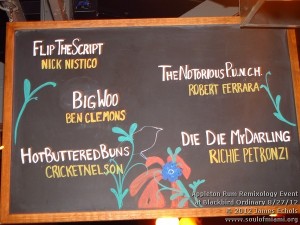 FLIP THE SCRIPT
NICK NISTICO
THE NOTORIOUS P.U.N.C.H.
ROBERT FERRARA
BIG WOO
BEN CLEMONS
DIE DIE MY DARLING
RICHIE PETRONZI
HOT BUTTERED BUNS
CRICKET NELSON
Appleton Rum Remixology Event
at Blackbird Ordinary 8/27/12
© 2012 James Echols
www.soulofmiami.org